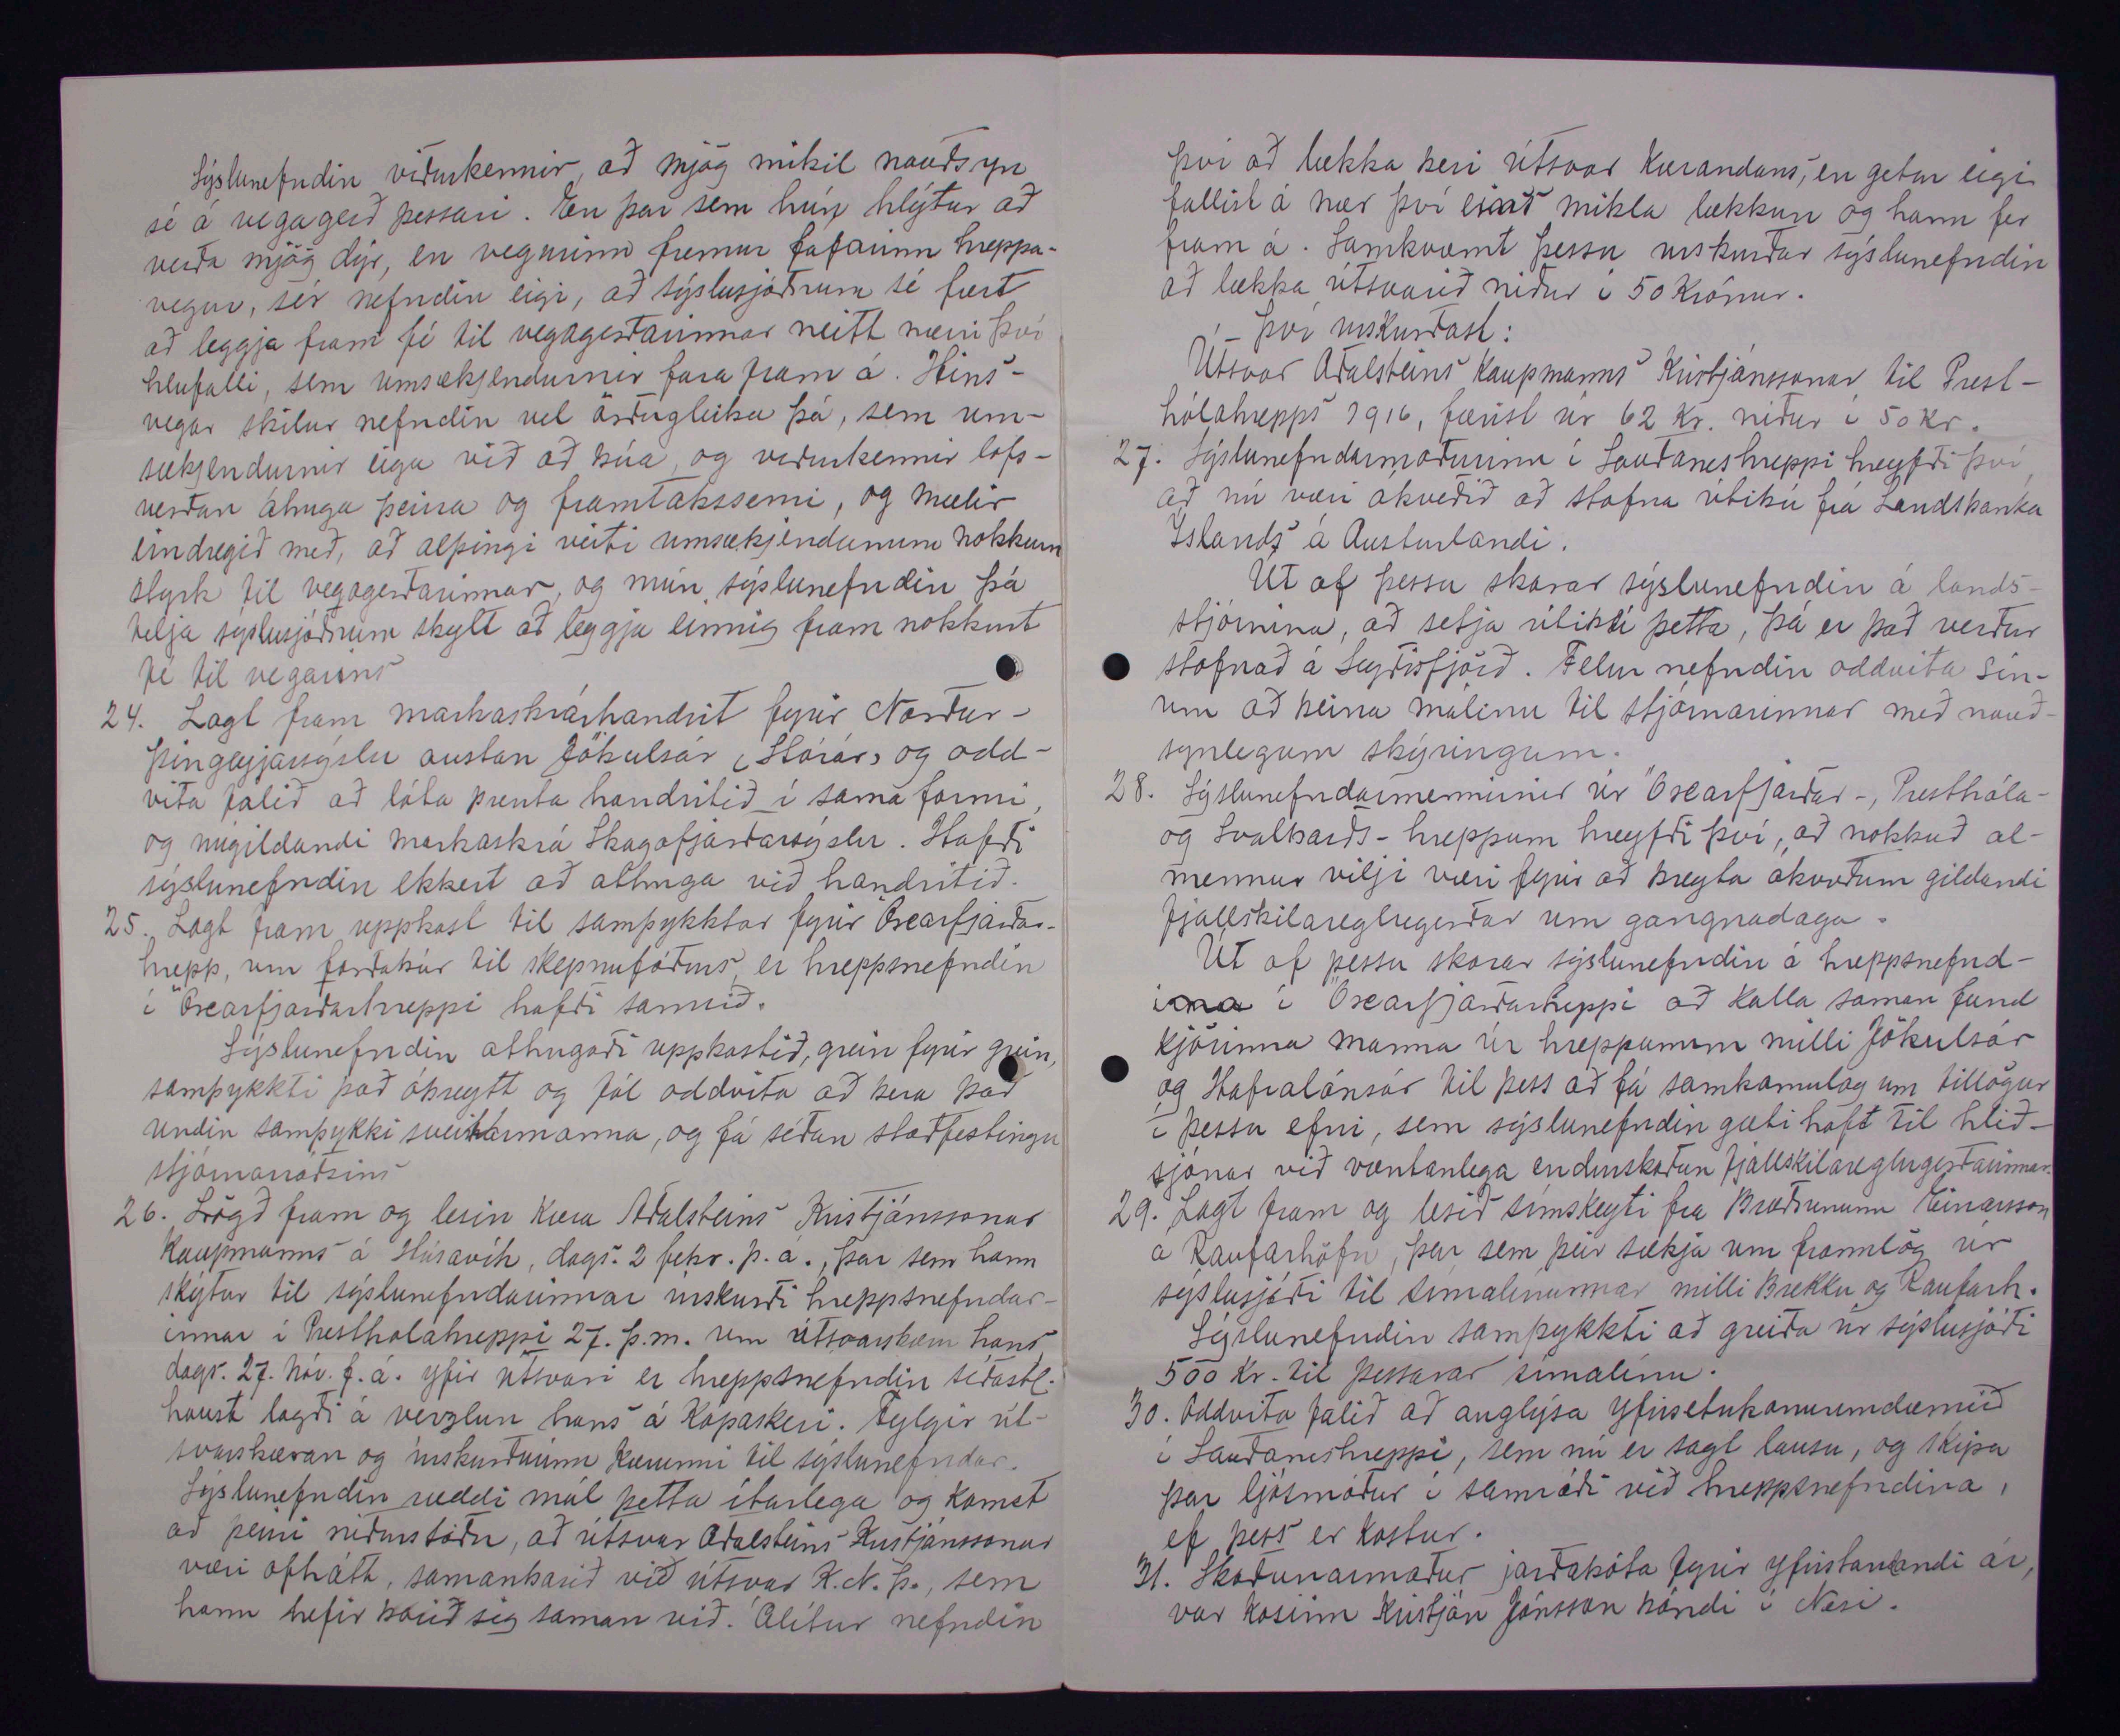 Sýslunefndin viðurkennir, að mjög mikil nauðsyn
sé á vegagerð þessari. En þar sem hún hlýtur að
verða mjög dýr, en vegurinn fremur fáfarinn hreppa-
vegur, sér nefndin eigi, að sýslusjóðnum sé fært
að leggja fram fé til vegagerðarinnar neitt nærri því
hlutfalli, sem umsækjendurnir fara fram á. Hins-
vegar skilur nefndin vel örðugleika þá, sem um-
sækjendurnir eiga við að búa, og viðurkennir lofs-
verðan áhuga þeirra og framtakssemi, og mælir
eindregið með, að alþingi veiti umsækjendunum nokkurn
styrk til vegagerðarinnar, og mun sýslunefndin þá
telja sýslusjóðnum skylt að leggja einnig fram nokkurt
fé til vegarins
24. Lagt fram markaskrárhandrit fyrir Norður-
þingeyjarsýslu austan Jökulsár (Stórár) og odd-
vita falið að láta prenta handritið í sama formi,
og núgildandi markaskrá Skagafjarðarsýslu. Hafði
sýslunefndin ekkert að athuga við handritið.
25. Lagt fram uppkast til samþykktar fyrir Öxarfjarðar-
hrepp, um forðabúr til skepnufóðurs, er hreppsnefndin
í Öxarfjarðarhreppi hafði samið.
Sýslunefndin athugaði uppkastið, grein fyrir grein,
samþykkti það óbreytt og fól oddvita að bera það
undir samþykki sveitarmanna, og fá síðan staðfestingu
stjórnarráðsins
26. Lögð fram og lesin kæra Aðalsteins Kristjánssonar
kaupmanns á Húsavík, dags. 2 febr. þ. á., þar sem hann
skýtur til sýslunefndarinnar úrskurði hreppsnefndar-
innar í Presthólahreppi 27. þ.m. um útsvarskæru hans
dags. 27. nóv. f. á. yfir útsvari er hreppsnefndin síðastl.
haust lagði á verzlun hans á Kópaskeri. Fylgir út-
svarskæran og úrskurðurinn kærunni til sýslunefndar.
Sýslunefndin ræddi mál þetta ítarlega og komst
að þeirri niðurstöðu, að útsvar Aðalsteins Kristjánssonar
væri ofhátt, samanborið við útsvar K. N. Þ., sem
hann hefir borið sig saman við. Álítur nefndin
því að lækka beri útsvar kærandans, en getur eigi
fallist á nær því eins mikla lækkun og hann fer
fram á. Samkvæmt þessu úrskurðar sýslunefndin
að lækka útsvarið niður í 50 krónur.
Því úrskurðast:
Útsvar Aðalsteins kaupmanns Kristjánssonar til Prest-
hólahrepps 1916, færist úr 62 Kr. niður í 50 kr.
27. Sýslunefndarmaðurinn í Sauðaneshreppi hreyfði því,
að nú væri ákveðið að stofna útibú frá Landsbanka
Íslands á Austurlandi.
Út af þessu skorar sýslunefndin á lands-
stjórnina, að setja útibú þetta, þá er það verður
stofnað á Seyðisfjörð. Felur nefndin oddvita sín-
um að beina málinu til stjórnarinnar með nauð-
synlegum skýringum.
28. Sýslunefndarmennirnir úr Öxarfjarðar-, Presthóla-
og Svalbarðs-hreppum hreyfði því, að nokkuð al-
mennur vilji væri fyrir að breyta ákvæðum gildandi
fjallskilareglugerðar um gangnadaga.
Út af þessu skorar sýslunefndin á hreppsnefnd-
ina í Öxarfjarðarhreppi að kalla saman fund
kjörinna manna úr hreppunum milli Jökulsár
og Hafralónsár til þess að fá samkomulag um tillögur
í þessu efni, sem sýslunefndin gæti haft til hlið-
sjónar við væntanlega endurskoðun fjallskilareglugerðarinnar.
29. Lagt fram og lesið símskeyti frá Bræðrunum Einarsson
á Raufarhöfn, þar sem þeir sækja um framlög úr
sýslusjóði til símalínunnar milli Brekku og Raufarh.
Sýslunefndin samþykkti að greiða úr sýslusjóði
500 Kr. til þessarar símalínu.
30. Oddvita falið að auglýsa yfirsetukonuumdæmið
í Sauðaneshreppi, sem nú er sagt lausu, og skipa
þar ljósmóður í samráði við hreppsnefndina,
ef þess er kostur.
31. Skoðunarmaður jarðabóta fyrir yfirstandandi ár,
var kosinn Kristján Jónsson bóndi í Nesi.